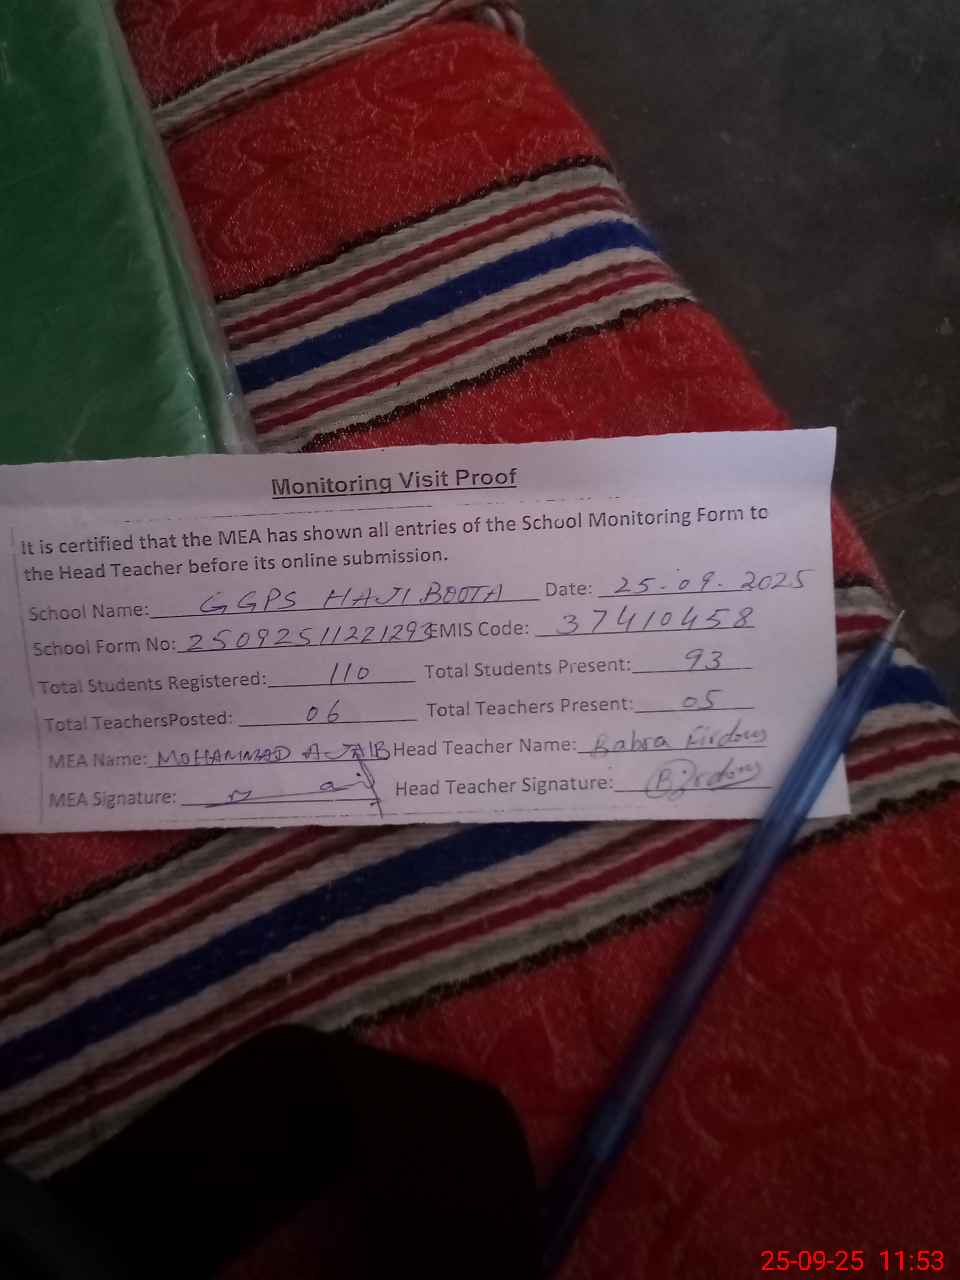 Monitoring Visit Proof
It is certified that the MEA has shown all entries of the School Monitoring Form to
the Head Teacher before its online submission.
School Name: GGPS HAJI BOOTA Date: 25-09-2025
School Form No: 25092511221293 EMIS Code: 37410458
Total Students Registered: 110 Total Students Present: 93
Total TeachersPosted: 06 Total Teachers Present: 05
MEA Name: MOHAMMAD AJAIB Head Teacher Name: Babra Firdous
MEA Signature: Head Teacher Signature: B.irdous
25-09-25 11:53